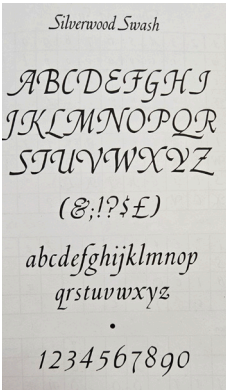 Silverwood Swash
ABCDEFGHI
JKLMNOPQR
STUVWXYZ
(&;!?$£)
abcdefghijklmnop
qrstuvwxyz
•
1234567890